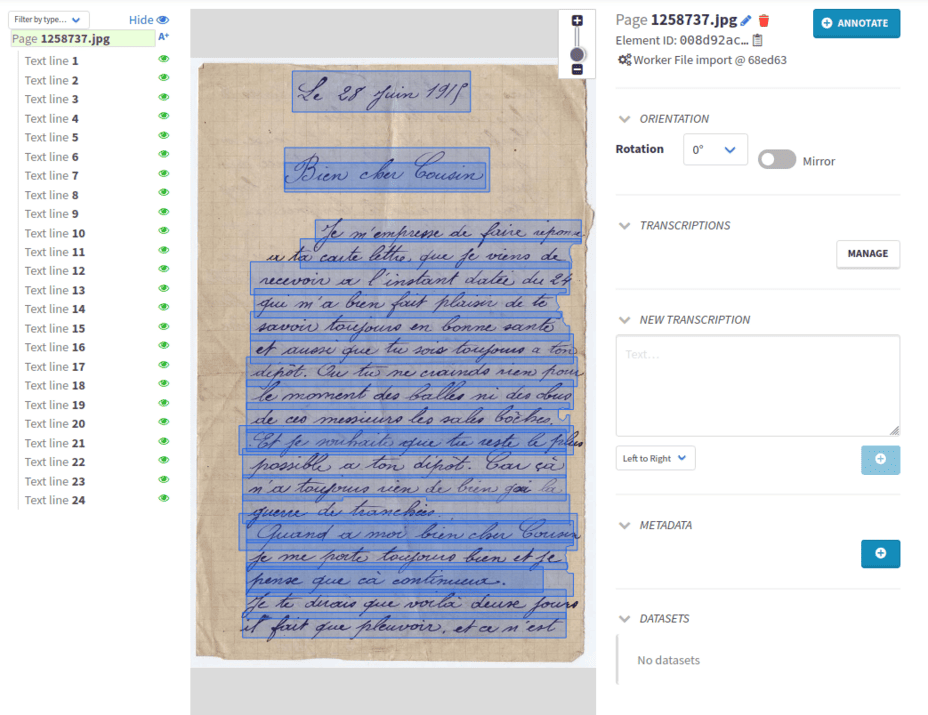 Filter by type...
Hide
Page 1258737.jpg
A+
Text line 1
Text line 2
Text line 3
Text line 4
Text line 5
Text line 6
Text line 7
Text line 8
Text line 9
Text line 10
Text line 11
Text line 12
Text line 13
Text line 14
Text line 15
Text line 16
Text line 17
Text line 18
Text line 19
Text line 20
Text line 21
Text line 22
Text line 23
Text line 24
Le 28 Juin 1915
Bien cher Cousin
Je m'empresse de faire
a ta carte lettre, que je viens de
recevoir a l'instant datée du 24
qui m'a bien fait plaisir de te
savoir toujours en bonne santé
et aussi que tu sois toujours a ton
dépôt. Ou tu ne crainds rien pour
le moment des balles ni des obus
de ces messieurs les sales bôches.
Et je souhaite que tu reste le plus
possible a ton dépôt. Car çà
n'a toujours rien de bien la
guerre de tranchées.
Quand a moi bien cher Cousin
je me porte toujours bien et je
pense que cà continuera.
Je te dirais que voilà deux jours
il fait que pleuvoir, et ca n'est
Page 1258737.jpg
ANNOTATE
Element ID: 008d92ac...
Worker File import @ 68ed63
ORIENTATION
Rotation
0°
Mirror
TRANSCRIPTIONS
MANAGE
NEW TRANSCRIPTION
Text...
Left to Right
METADATA
DATASETS
No datasets